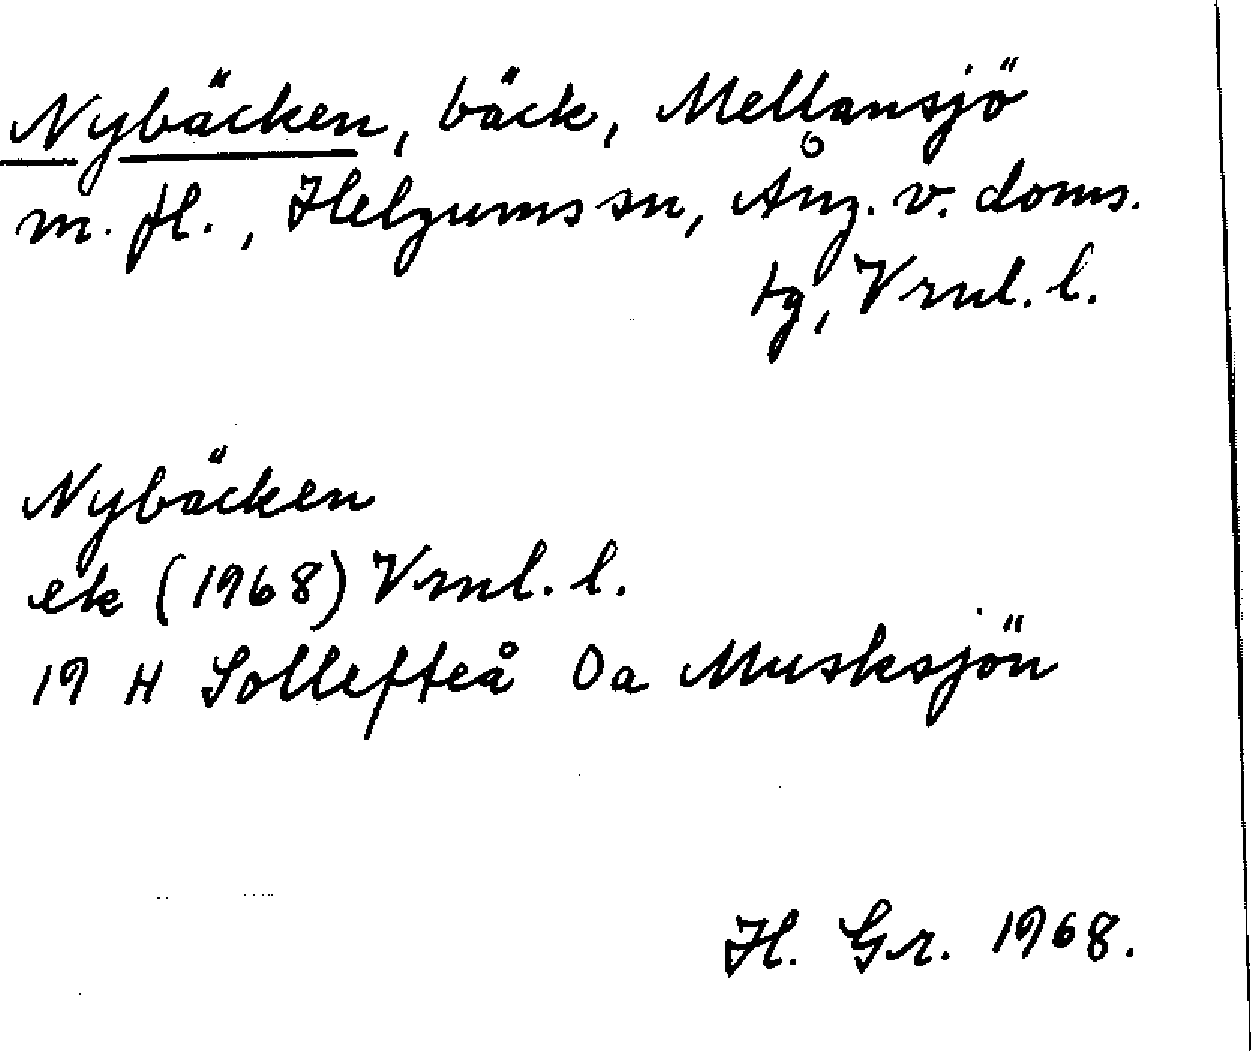 Nybäcken, bäck, Mellansjö
m. fl., Helgums sn, Ång. v. doms.
tg, Vrnl. l.
Nybäcken
ek (1968) Vrnl. l.
19 H Sollefteå 0a Musksjön
H. Gr. 1968.